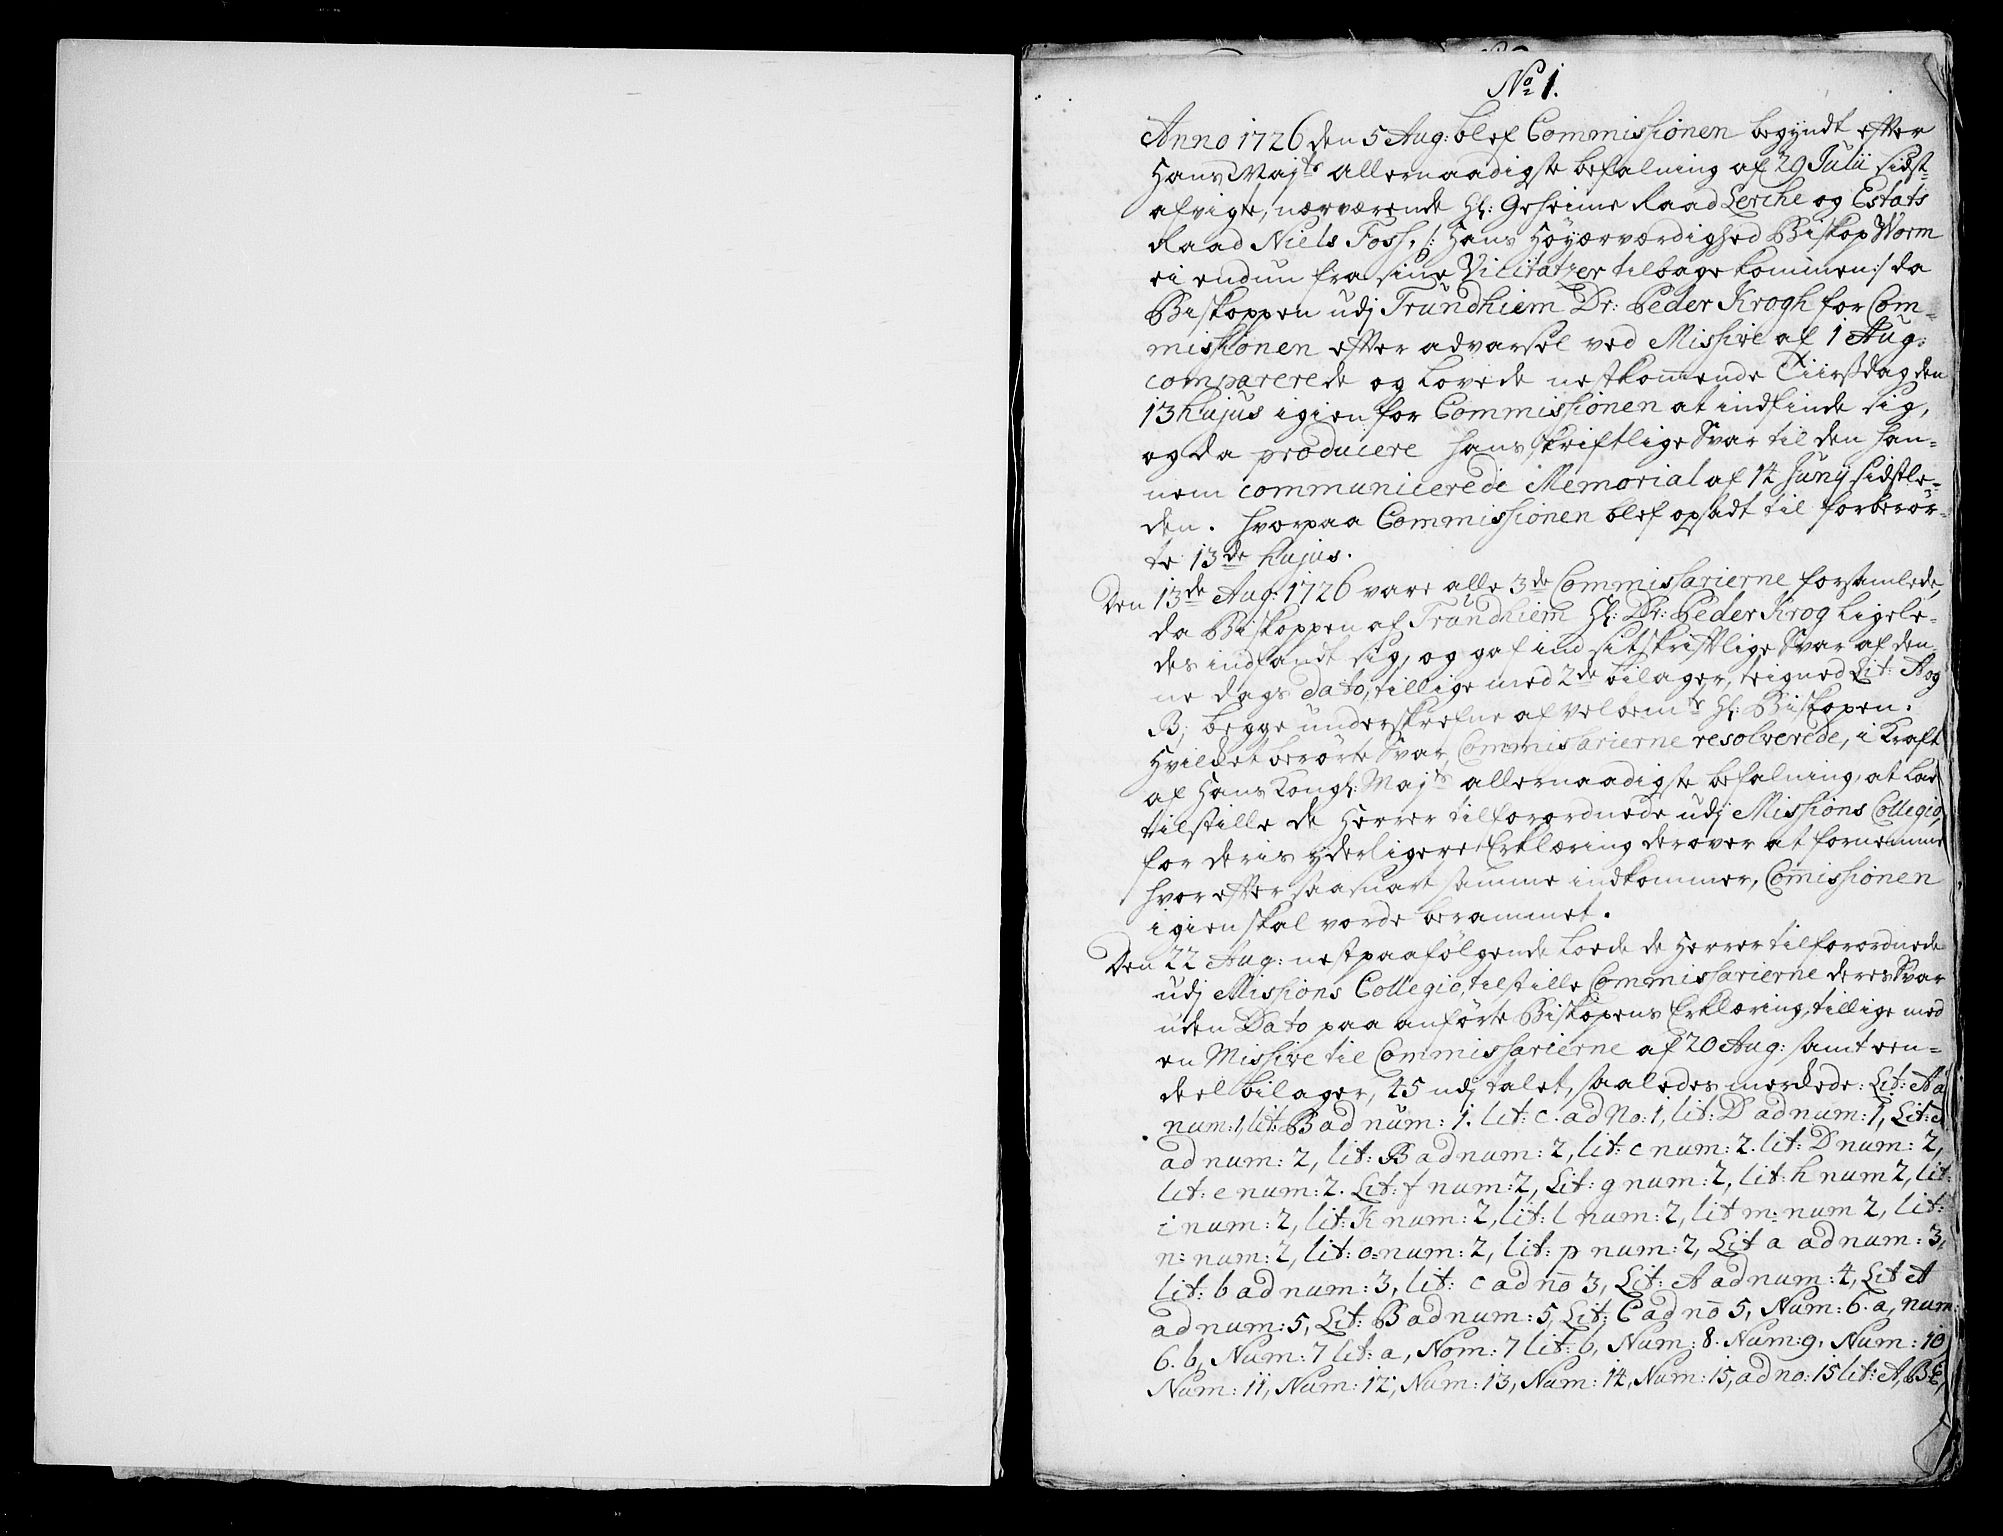 No 1.
Anno 1726 den 5 Aug: blef Commissionen begyndt efter
Hans Majts allernaadigste befalning af 29 Julii sidst-
afvigte, nærværende Hl: Geheime Raad Lerche og Estats
Raad Niels Foss, /: Hans Høyærværdighed Biskop Worm
ei endnu fra sine Visitatzer tilbage kommen:/ da
Biskoppen udj Trundhiem Dr: Peder Krogh for Com-
missionen efter advarsel ved Missive af 1 Aug:
comparerede og lovede nestkomende Tiirsdag den
13 hujus igien for Commissionen at indfinde sig,
og da producere hans skriftlige Svar til den han-
nem communicerede Memorial af 14 Junij sidstle-
den. Hvorpaa Commissionen blef opsadt til forberør-
te 13de hujus.
Den 13de Aug: 1726 vare alle 3de Commissarierne forsamlede,
da Biskoppen af Trundhiem Hl: Dr: Peder Krog ligele-
des indfandt sig, og gaf ind sit skriftlige Svar af den-
ne dags dato, tillige med 2de bilager, teigned Lit: A og
B; begge underskrefne af velbemte Hl: Biskopen.
Hvilket berørte Svar, Commissarierne resolverede, i Kraft
af Hans Kongl: Majts allernaadigste befalning, at lade
tilstille de Herrer tilforordnede udj Missions Collegio,
for deris yderligere Erklæring derover at fornemme
hvorefter saasnart samme indkommer, Comissionen
igien skal vorde berammet.
Den 22 Aug: nestpaafølgende loede de Herrer tilforordnede
udj Missions Collegio, tilstille Commissarierne deres Svar
uden Dato paa anførte Biskopens Erklæring, tillige med
en Missive til Commissarierne af 20 Aug: samt een-
deel bilager, 45 udj talet, saaledes merckede: Lit: A ad
num: 1, lit: B ad num: 1. lit: c. ad No: 1, lit: D ad num: 1, Lit: a
ad num: 2, lit: B ad num: 2, lit: c num: 2. lit: D num: 2,
lit: e num: 2. Lit: f num: 2, Lit: g num: 2, lit: h num 2, lit:
i num: 2, lit: K num: 2, lit: l num: 2, lit m: num 2, lit:
n: num: 2, lit: o: num: 2, lit: p num: 2, Lit a ad num: 3,
lit: b ad num: 3, lit: c ad no 3, Lit: A ad num: 4, Lit A
ad num: 5, Lit: B ad num: 5, Lit: C ad no 5, Num: 6. a, num:
6. b, Num: 7 lit: a, Nom: 7 lit: b, Num: 8. Num: 9, Num: 10,
Num: 11, Num: 12, Num: 13, Num: 14, Num: 15, ad no: 15 lit: A, B. C,